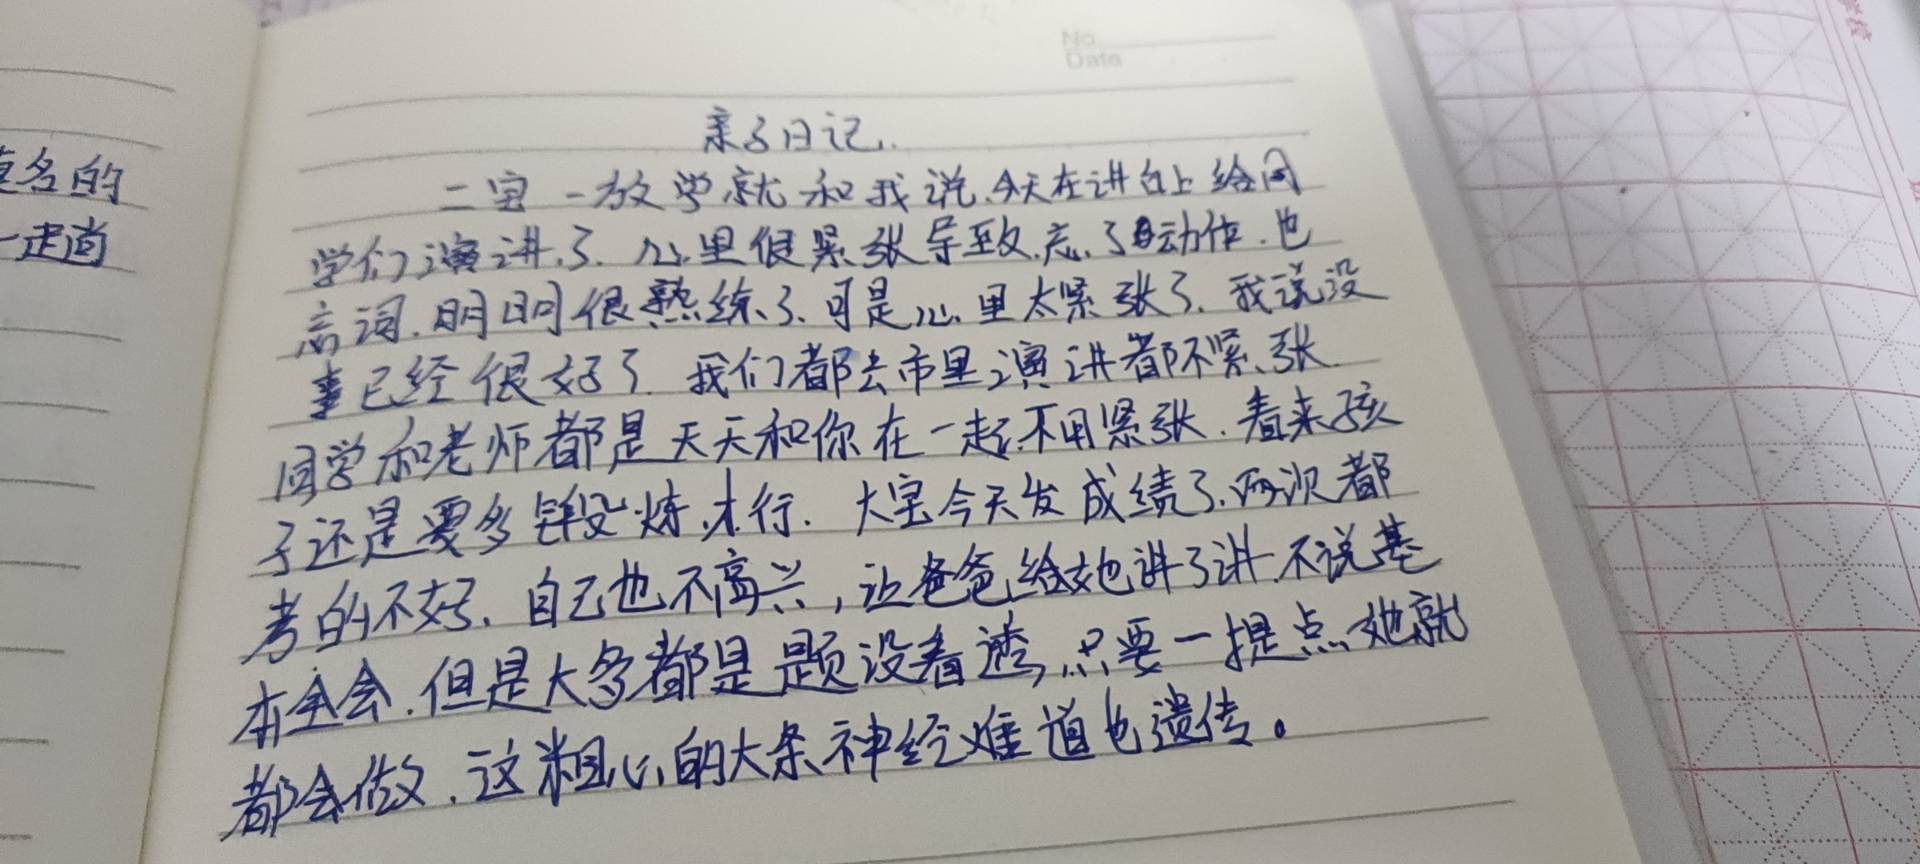 No.
Date
莫名的
一起尚
亲子日记.
二宝一放学就和我说.今天在讲台上给同
学们演讲了.心里很紧张导致忘了动作.也
忘词.明明很熟练了.可是心里太紧张了.我说没
事已经很好了.我们都去市里演讲都不紧张.
同学和老师都是天天和你在一起不用紧张.看来孩
子还是要多锻炼才行.大宝今天发成绩了.两次都
考的不好.自己也不高兴,让爸爸给她讲了讲.不说基
本全会.但是大多都是题没看透,只要一提点她就
都会做.这粗心的大条神经难道也遗传。